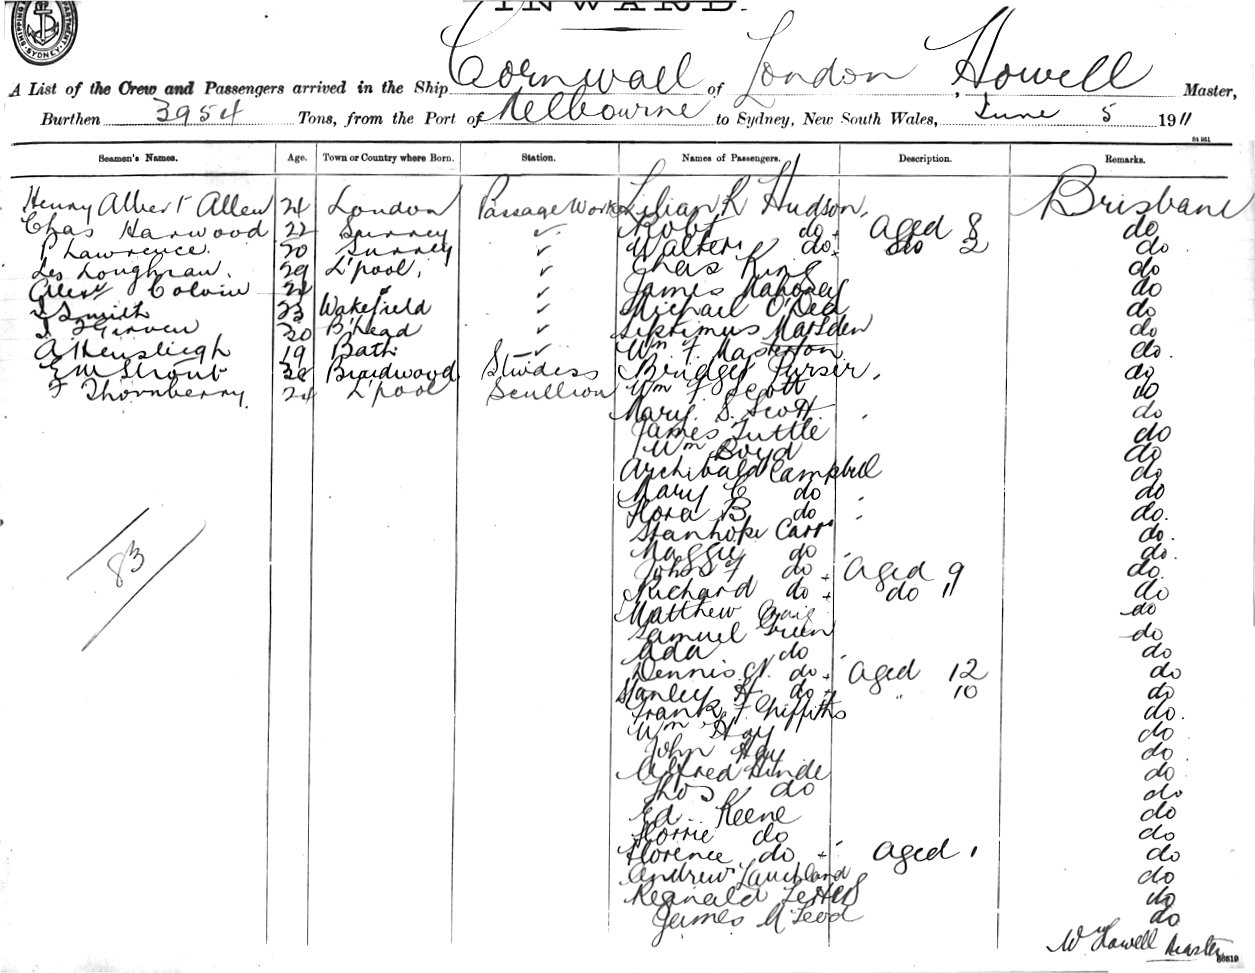 SHIPPING DEPARTMENT SYDNEY
INWARD.
A List of the Crew and Passengers arrived in the Ship Cornwall of London, Howell Master,
Burthen 3954 Tons, from the Port of Melbourne to Sydney, New South Wales, June 5 1911
84 951
Seamen's Names. Age. Town or Country where Born. Station. Names of Passengers. Description. Remarks.
Henry Albert Allen 24 London Passage Worker Lilian R Hudson, Brisbane
Chas Harwood 22 Surrey ✓ Robt do + Aged 8 do
P Lawrence. 20 Surrey ✓ Walter do + do 2 do
Les Loughran. 29 L'pool, ✓ Chas King do
Colvin ✓ James Mahoney do
Smith 23 Wakefield ✓ Michael O'Dea do
20 B'head ✓ Septimus Marsden do
A Hensleigh 19 Bath ✓ Wm F. Masterton do.
E M Strout Braidwood Stwdess Bridget Purser, do
F Thornberry. 24 L'pool Scullion Wm F. Scott do
Mary S. Scott do
James Tuttle do
Wm Boyd do
Archibald Campbell do
Mary C do do
Flora B do do.
Stanhope Carr do.
Maggie do do.
John F do + Aged 9 do
Richard do + do 11 do
Matthew Craig do
Samuel Green do
Ada do do
Dennis N. do + Aged 12 do
Stanley H do + " 10 do
Frank F Griffiths do.
Wm Hay do
John Hay do
Alfred Hinde do
Thos do do
Ed. Keene do
Florrie do do
Florence do + Aged 1 do
Andrew Lauchland do
Reginald do
James McLeod do
83
Wm Howell Master
86519